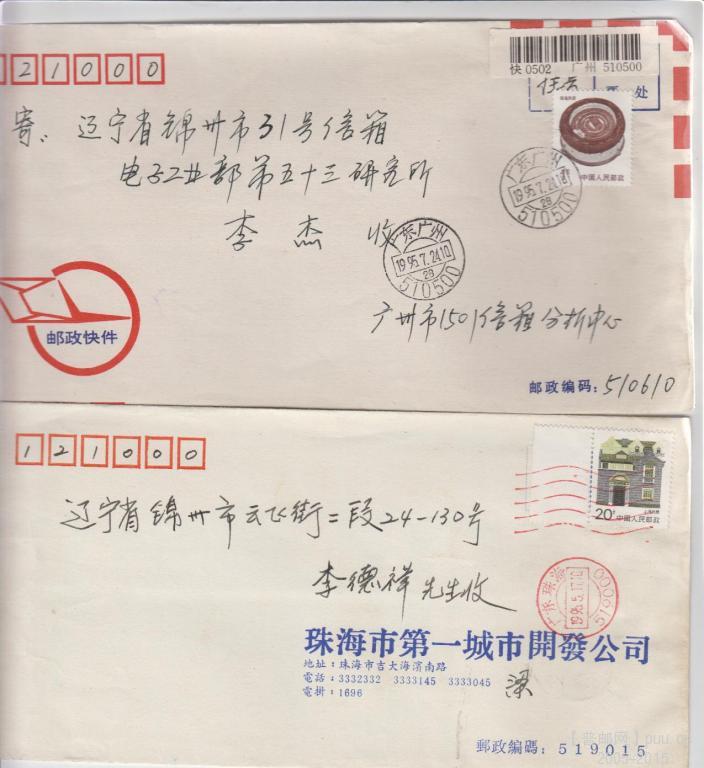 快 0502 广州 510500
21000
寄：辽宁省锦州市31号信箱
处
电子工业部第五十三研究所
中国人民邮政
李杰 收
广东广州
1995.7.24.10
28
510500
广东广州
1995.7.24.10
28
510500
邮政快件
广州市1501信箱分析中心
邮政编码：510610
121000
辽宁省锦州市云飞街二段24-130号
20分 中国人民邮政
李德祥先生收
广东珠海
519000
珠海市第一城市開發公司
地址：珠海市吉大海濱南路
電話：3332332 3333145 3333045
電掛：1696
梁
郵政編碼：519015
【普邮网】puu.cc
2005-2015